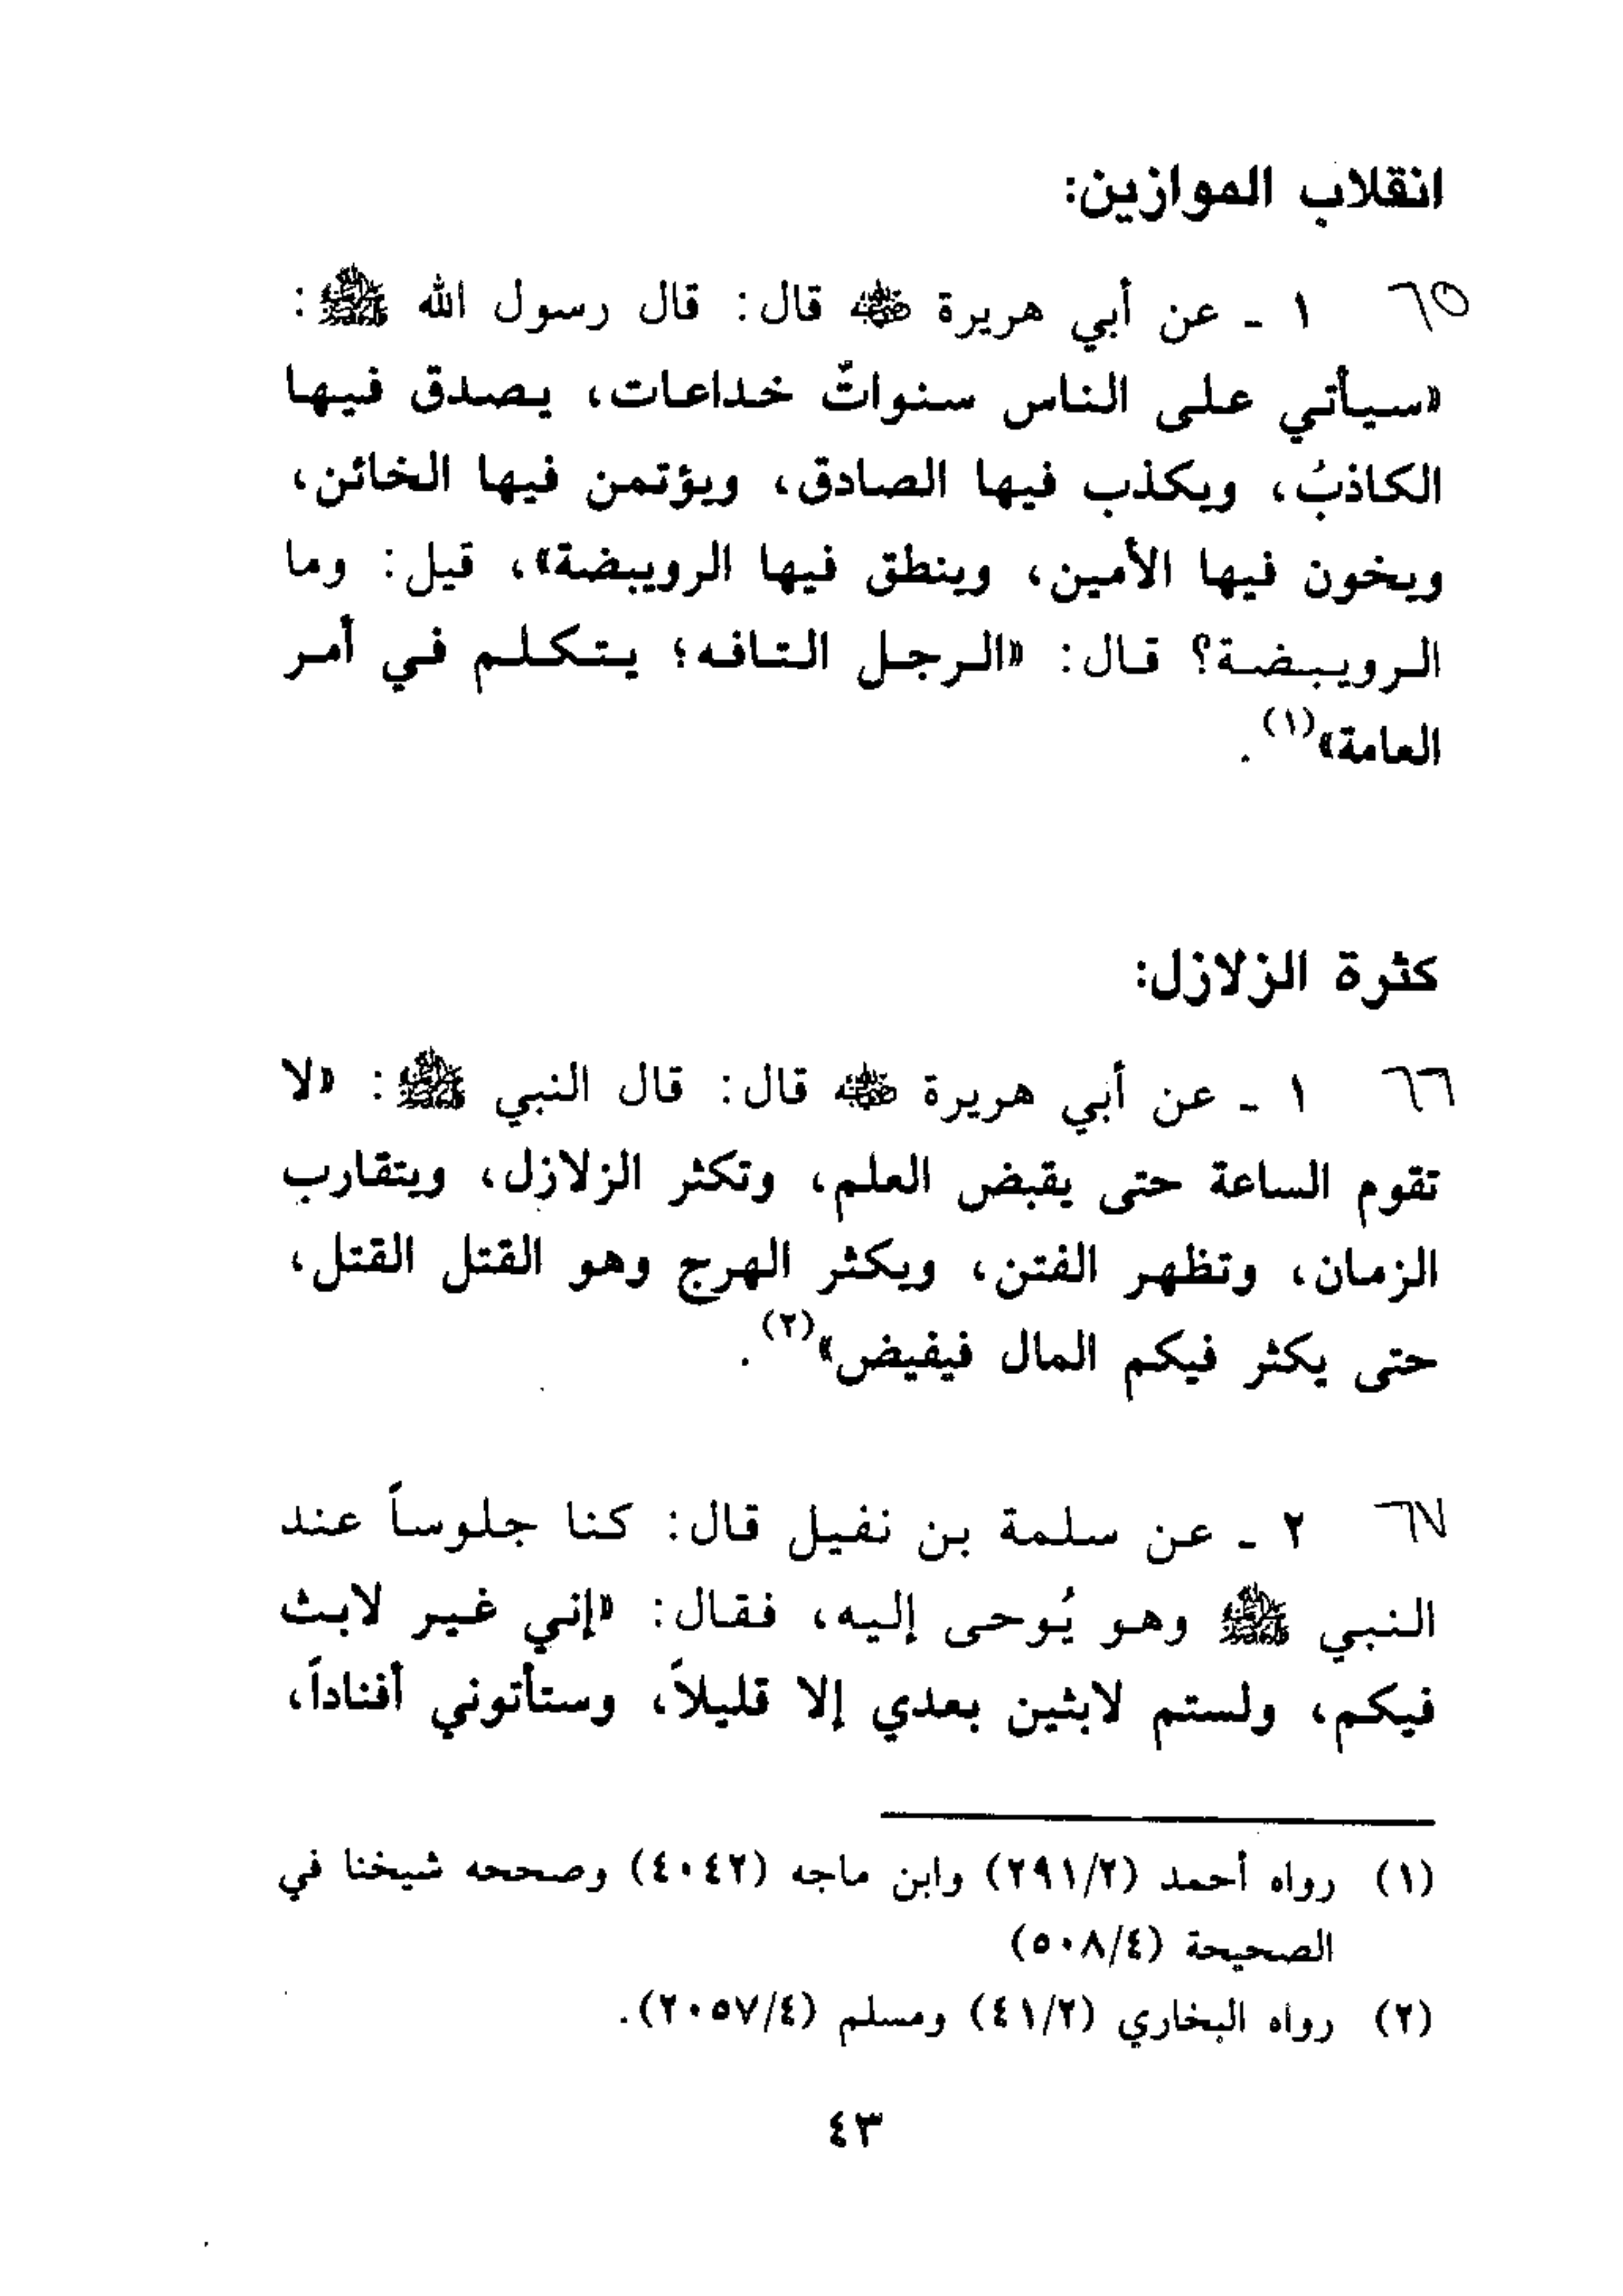 انقلاب الموازين:
٦٥ ١ ـ عن أبي هريرة ﵁ قال: قال رسول الله ﷺ:
«سيأتي على الناس سنواتٌ خداعات، يصدق فيها
الكاذبُ، ويكذب فيها الصادق، ويؤتمن فيها الخائن،
ويخون فيها الأمين، وينطق فيها الرويبضة»، قيل: وما
الرويبضة؟ قال: «الرجل التافه؛ يتكلم في أمر
العامة»(١).
كثرة الزلازل:
٦٦ ١ ـ عن أبي هريرة ﵁ قال: قال النبي ﷺ: «لا
تقوم الساعة حتى يقبض العلم، وتكثر الزلازل، ويتقارب
الزمان، وتظهر الفتن، ويكثر الهرج وهو القتل القتل،
حتى يكثر فيكم المال فيفيض»(٢).
٦٧ ٢ ـ عن سلمة بن نفيل قال: كنا جلوساً عند
النبي ﷺ وهو يُوحى إليه، فقال: «إني غير لابث
فيكم، ولستم لابثين بعدي إلا قليلاً، وستأتوني أفناداً،
(١) رواه أحمد (٢٩١/٢) وابن ماجه (٤٠٤٢) وصححه شيخنا في
الصحيحة (٥٠٨/٤)
(٢) رواه البخاري (٤١/٢) ومسلم (٢٠٥٧/٤).
٤٣